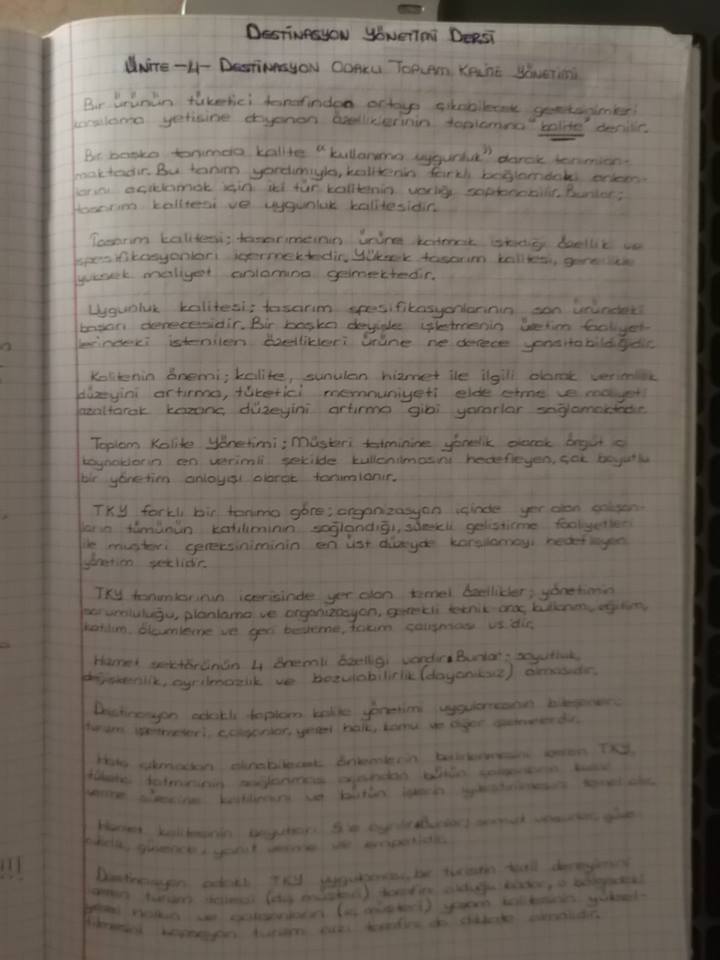 DESTİNASYON YÖNETİMİ DERSİ
ÜNİTE-4- DESTİNASYON ODAKLI TOPLAM KALİTE YÖNETİMİ
Bir ürünün tüketici tarafından ortaya çıkabilecek gereksinimleri
karşılama yetisine dayanan özelliklerinin toplamına "kalite" denilir.
Bir başka tanımda kalite "kullanıma uygunluk" olarak tanımlan-
maktadır. Bu tanım yardımıyla, kalitenin farklı bağlamdaki anlam-
larını açıklamak için iki tür kalitenin varlığı saptanabilir. Bunlar;
tasarım kalitesi ve uygunluk kalitesidir.
Tasarım kalitesi; tasarımcının ürüne katmak istediği özellik ve
spesifikasyonları içermektedir. Yüksek tasarım kalitesi, genellikle
yüksek maliyet anlamına gelmektedir.
Uygunluk kalitesi; tasarım spesifikasyonlarının son üründeki
başarı derecesidir. Bir başka deyişle işletmenin üretim faaliyet-
lerindeki istenilen özellikleri ürüne ne derece yansıtabildiğidir.
Kalitenin önemi; kalite, sunulan hizmet ile ilgili olarak verimlilik
düzeyini artırma, tüketici memnuniyeti elde etme ve maliyeti
azaltarak kazanç düzeyini artırma gibi yararlar sağlamaktadır.
Toplam Kalite Yönetimi; Müşteri tatminine yönelik olarak örgüt içi
kaynakların en verimli şekilde kullanılmasını hedefleyen, çok boyutlu
bir yönetim anlayışı olarak tanımlanır.
TKY farklı bir tanıma göre; organizasyon içinde yer alan çalışan-
ların tümünün katılımının sağlandığı, sürekli geliştirme faaliyetleri
ile müşteri gereksiniminin en üst düzeyde karşılamayı hedefleyen
yönetim şeklidir.
TKY tanımlarının içerisinde yer alan temel özellikler; yönetimin
sorumluluğu, planlama ve organizasyon, gerekli teknik araç kullanımı, eğitim,
katılım, ölçümleme ve geri besleme, takım çalışması vs.'dir.
Hizmet sektörünün 4 önemli özelliği vardır. Bunlar; soyutluk,
değişkenlik, ayrılmazlık ve bozulabilirlik (dayanıksız) olmasıdır.
Destinasyon odaklı toplam kalite yönetimi uygulamasının bileşenleri;
turizm işletmeleri, çalışanlar, yerel halk, kamu ve diğer işletmelerdir.
Hata çıkmadan alınabilecek önlemlerin belirlenmesini içeren TKY,
tüketici tatmininin sağlanması açısından bütün çalışanların karar
verme sürecine katılımını ve bütün işlerin
Hizmet kalitesinin boyutları 5'e ayrılır. Bunlar; somut unsurlar, güve-
nilirlik, güvence, yanıt verme ve empatidir.
Destinasyon odaklı TKY uygulaması, bir turistin tatil deneyimini
içeren turizm talebi (dış müşteri) tarafını olduğu kadar, o bölgedeki
yerel halkın ve çalışanların (iç müşteri) yaşam kalitesinin yüksel-
tilmesini kapsayan turizm arzı tarafını da dikkate almalıdır.
!!!